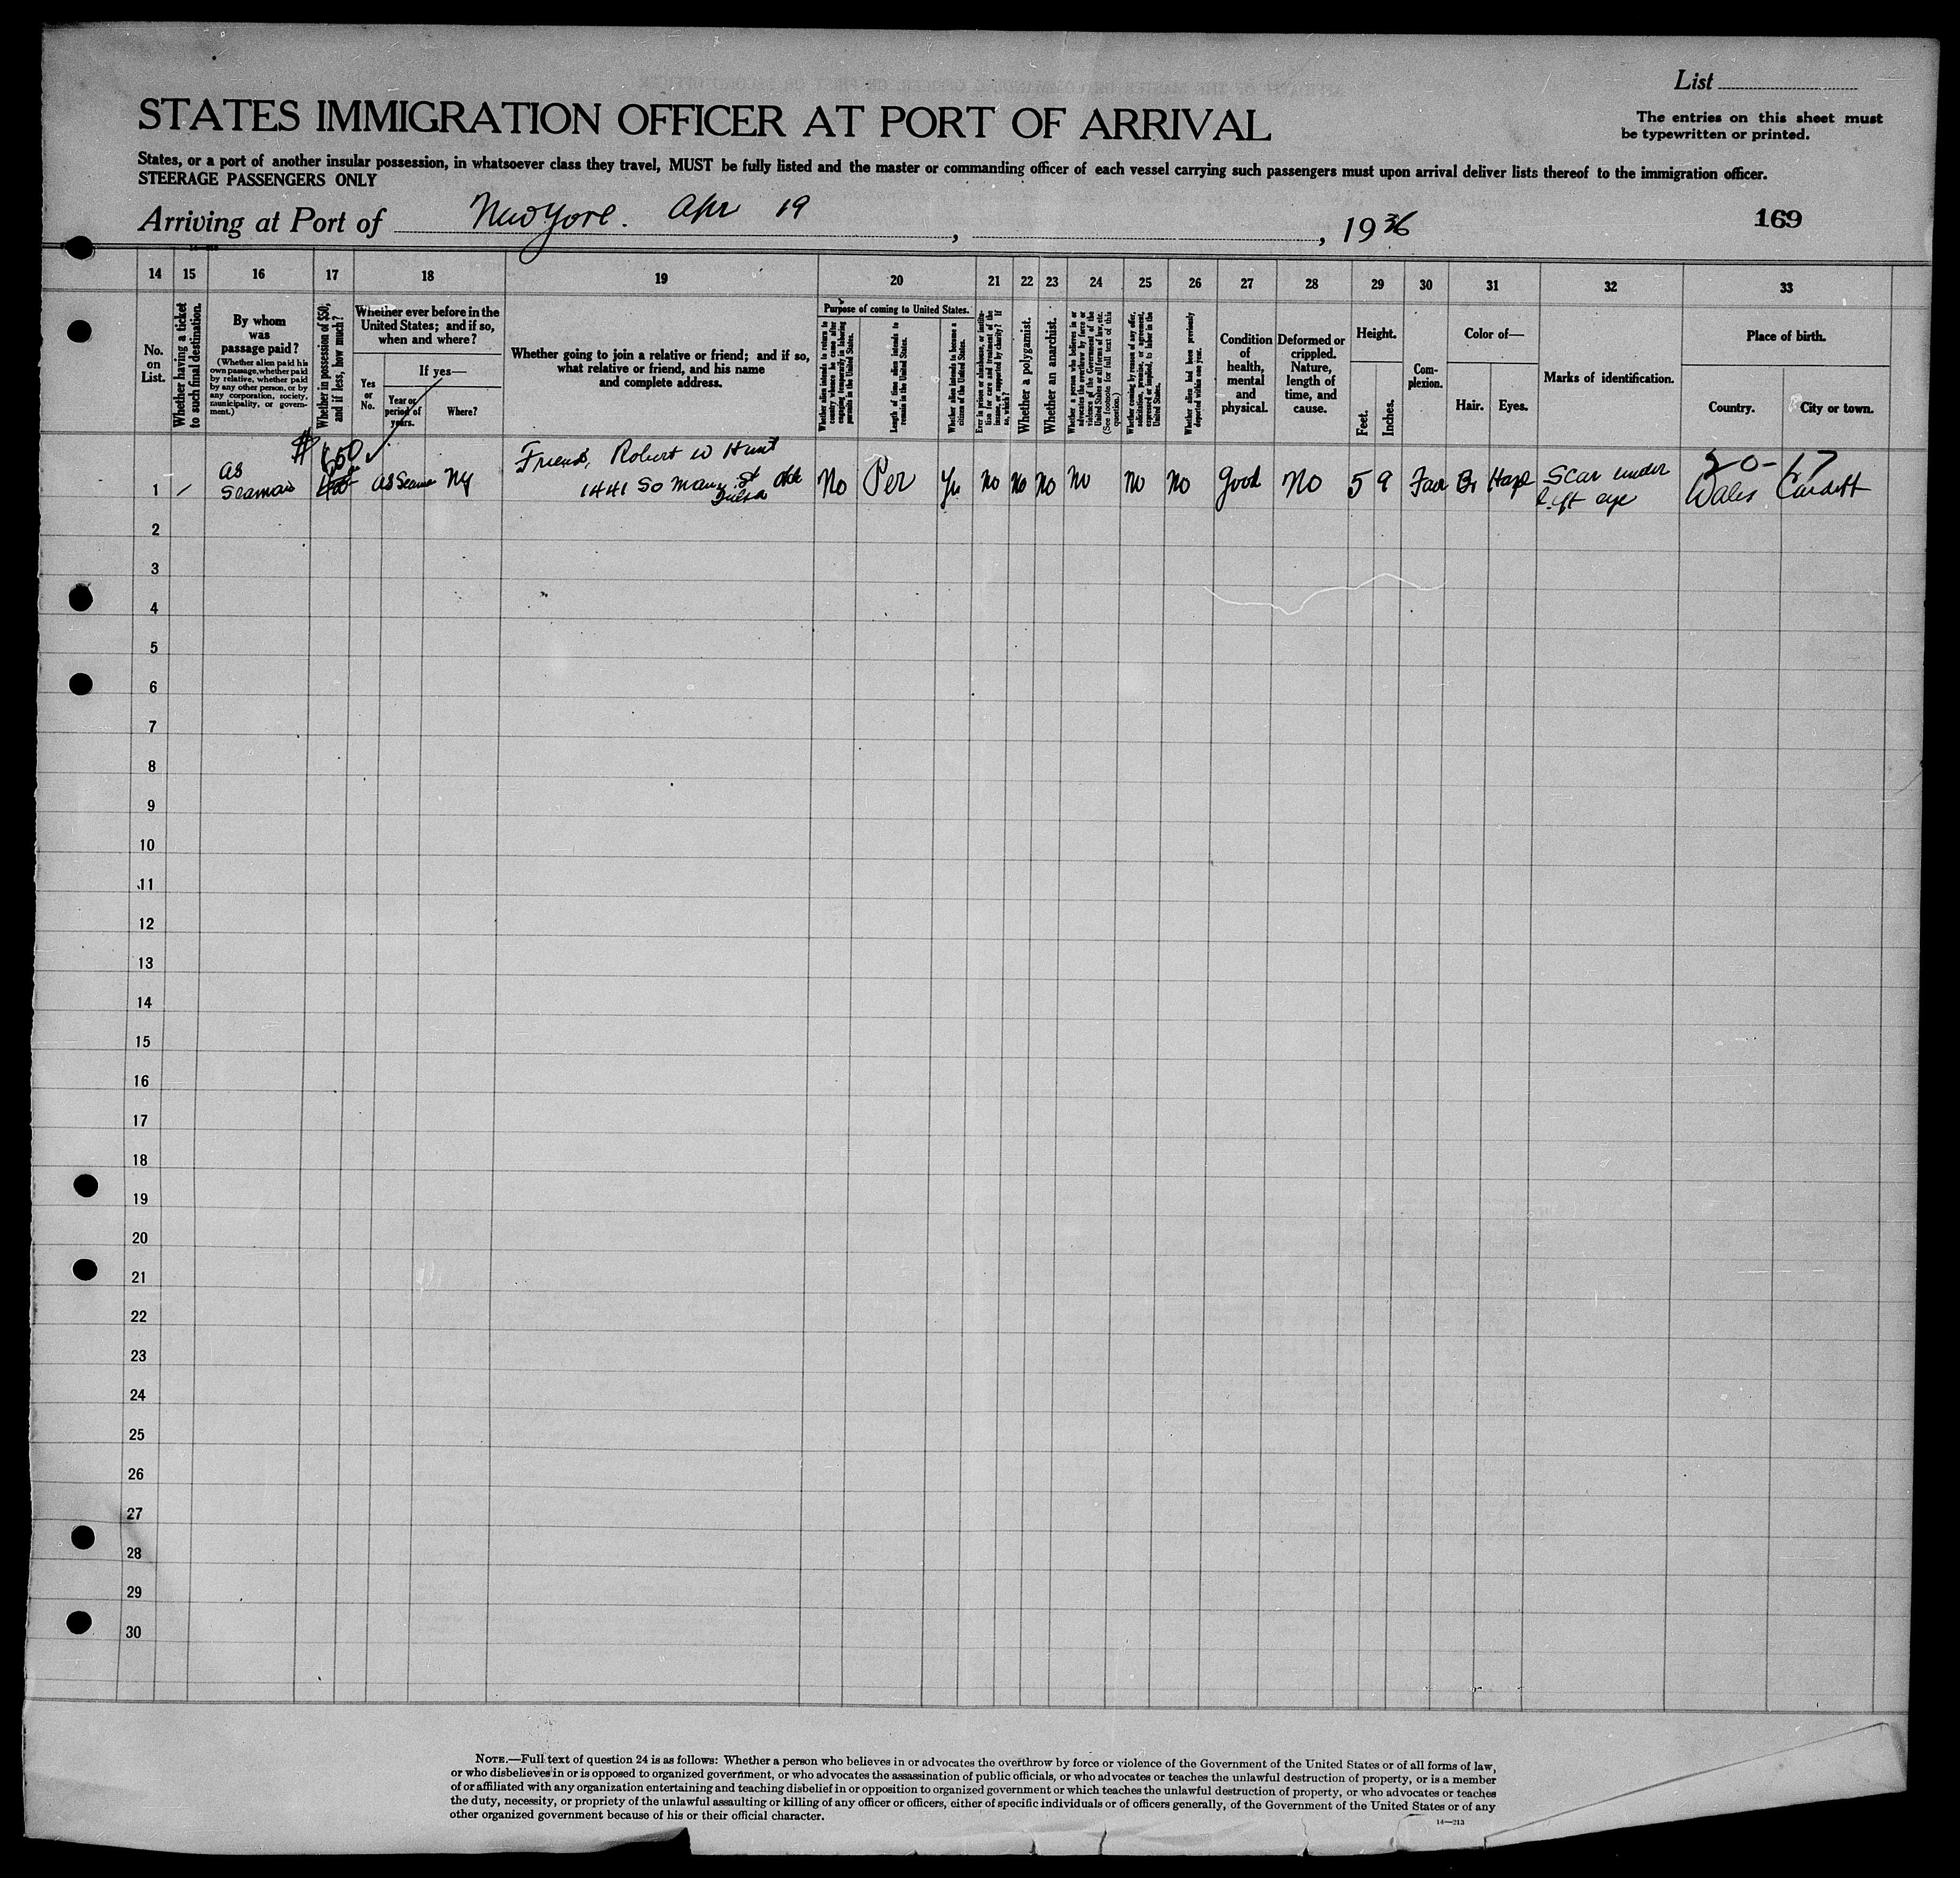 List
STATES IMMIGRATION OFFICER AT PORT OF ARRIVAL
The entries on this sheet must
be typewritten or printed.
States, or a port of another insular possession, in whatsoever class they travel, MUST be fully listed and the master or commanding officer of each vessel carrying such passengers must upon arrival deliver lists thereof to the immigration officer.
STEERAGE PASSENGERS ONLY
Arriving at Port of New York. Apr 19, , 1936
169
14 15 16 17 18 19 20 21 22 23 24 25 26 27 28 29 30 31 32 33
No. on List.
Whether having a ticket to such final destination.
By whom was passage paid?
(Whether alien paid his own passage, whether paid by relative, whether paid by any other person, or by any corporation, society, municipality, or government.)
Whether in possession of $50, and if less, how much?
Whether ever before in the United States; and if so, when and where?
Yes or No.
If yes—
Year or period of years.
Where?
Whether going to join a relative or friend; and if so, what relative or friend, and his name and complete address.
Purpose of coming to United States.
Whether alien intends to return to country whence he came after engaging temporarily in laboring pursuits in the United States.
Length of time alien intends to remain in the United States.
Whether alien intends to become a citizen of the United States.
Ever in prison or almshouse, or institution for care and treatment of the insane, or supported by charity? If so, which?
Whether a polygamist.
Whether an anarchist.
Whether a person who believes in or advocates the overthrow by force or violence of the Government of the United States or all forms of law, etc. (See footnote for full text of this question.)
Whether coming by reason of any offer, solicitation, promise, or agreement, expressed or implied, to labor in the United States.
Whether alien had been previously deported within one year.
Condition of health, mental and physical.
Deformed or crippled. Nature, length of time, and cause.
Height.
Feet.
Inches.
Complexion.
Color of—
Hair.
Eyes.
Marks of identification.
Place of birth.
Country.
City or town.
$ 650
20-17
1 / as Seaman as Seaman NY Friend, Robert W Hunt No Per Yes No No No No No No Good No 5 9 Fair Br Haze Scar under Wales Cardiff
1441 So Main St Tulsa Okla left eye
2
3
4
5
6
7
8
9
10
11
12
13
14
15
16
17
18
19
20
21
22
23
24
25
26
27
28
29
30
NOTE.—Full text of question 24 is as follows: Whether a person who believes in or advocates the overthrow by force or violence of the Government of the United States or of all forms of law,
or who disbelieves in or is opposed to organized government, or who advocates the assassination of public officials, or who advocates or teaches the unlawful destruction of property, or is a member
of or affiliated with any organization entertaining and teaching disbelief in or opposition to organized government or which teaches the unlawful destruction of property, or who advocates or teaches
the duty, necessity, or propriety of the unlawful assaulting or killing of any officer or officers, either of specific individuals or of officers generally, of the Government of the United States or of any
other organized government because of his or their official character.
14—213